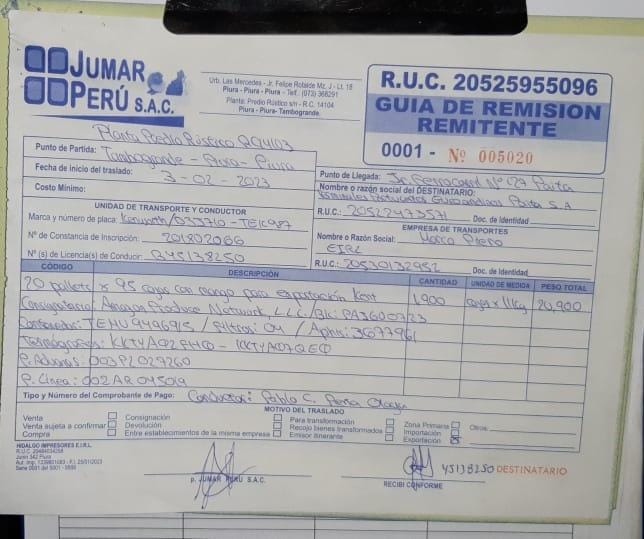 JUMAR
PERÚ S.A.C.
Urb. Las Mercedes - Jr. Felipe Rotalde Mz. J - Lt. 18
Piura - Piura - Piura - Telf. (073) 368291
Planta: Predio Rústico s/n - R.C. 14104
Piura - Piura- Tambogrande.
R.U.C. 20525955096
GUIA DE REMISION
REMITENTE
0001 - Nº 005020
Planta Predio Rústico
Punto de Partida: Tambogrande - Piura - Piura
Fecha de inicio del traslado: 3-02-2023
Costo Mínimo:
Punto de Llegada: Jr Ferrocarril Nº 127 Paita
Nombre o razón social del DESTINATARIO:
Terminales Portuarios Euroandinos Paita S.A
R.U.C.: 20522473571 Doc. de Identidad
UNIDAD DE TRANSPORTE Y CONDUCTOR
Marca y número de placa: Kenworth/
Nº de Constancia de Inscripción: 201802066
Nº (s) de Licencia(s) de Conducir: B45138250
EMPRESA DE TRANSPORTES
Nombre o Razón Social: Marco Piero
EIRL
R.U.C.: 20530132952 Doc. de Identidad
CÓDIGO DESCRIPCIÓN CANTIDAD UNIDAD DE MEDIDA PESO TOTAL
20 pallets x 95 cajas con mango para exportación Kent 1,900 cajas x 11kg 20,900
Consignatario: Amazon Produce Network, L.L.C./Bk: PA3G00723
Contenedor: TEHU9446915 / Filtros: 04 / Aphis: 3677961
Termógrafos:
P. Aduanas: 003PL027260
P. Línea: 002AR045019
Tipo y Número del Comprobante de Pago: Conductor: Pablo C. Peña
MOTIVO DEL TRASLADO
Venta Consignación Para transformación Zona Primaria Otros:
Venta sujeta a confirmar Devolución Recojo bienes transformados Importación
Compra Entre establecimientos de la misma empresa Emisor itinerante Exportación
HIDALGO IMPRESORES E.I.R.L.
Junin 342 Piura
Serie 0001 del 5001 - 5500
p. JUMAR PERÚ S.A.C.
45138250 DESTINATARIO
RECIBI CONFORME